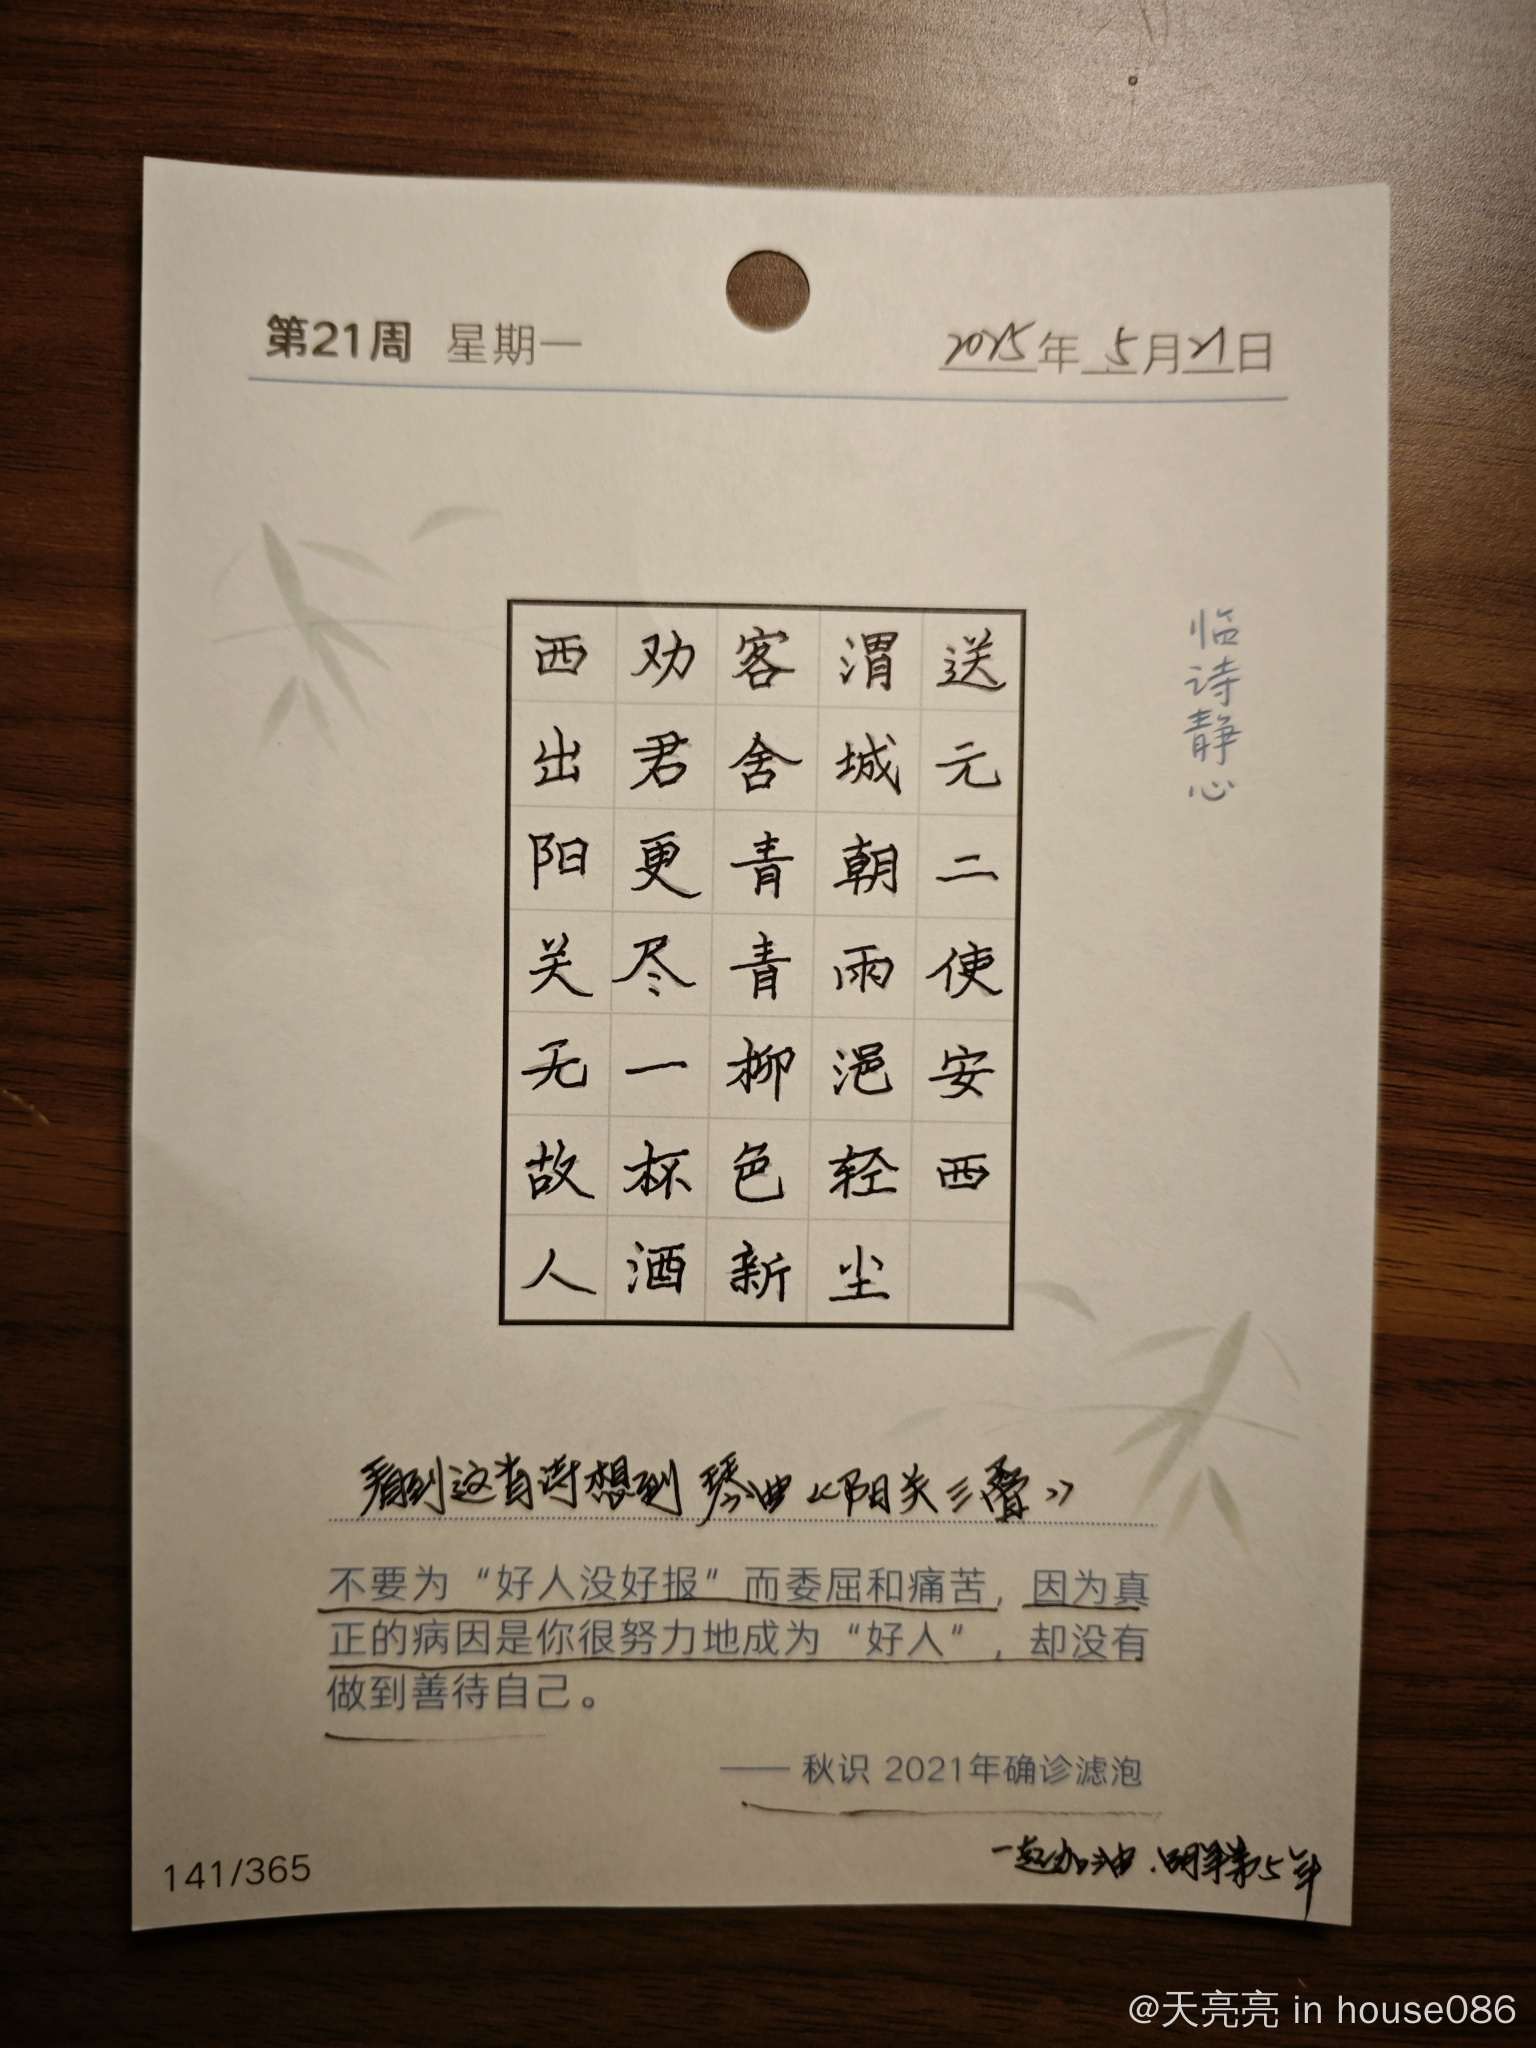 第21周 星期一
2025年5月21日
临诗静心
送元二使安西
渭城朝雨浥轻尘
客舍青青柳色新
劝君更尽一杯酒
西出阳关无故人
看到这首诗想到琴曲《阳关三叠》
不要为“好人没好报”而委屈和痛苦，因为真
正的病因是你很努力地成为“好人”，却没有
做到善待自己。
—— 秋识 2021年确诊滤泡
一起加油.明年第5年
141/365
@天亮亮 in house086